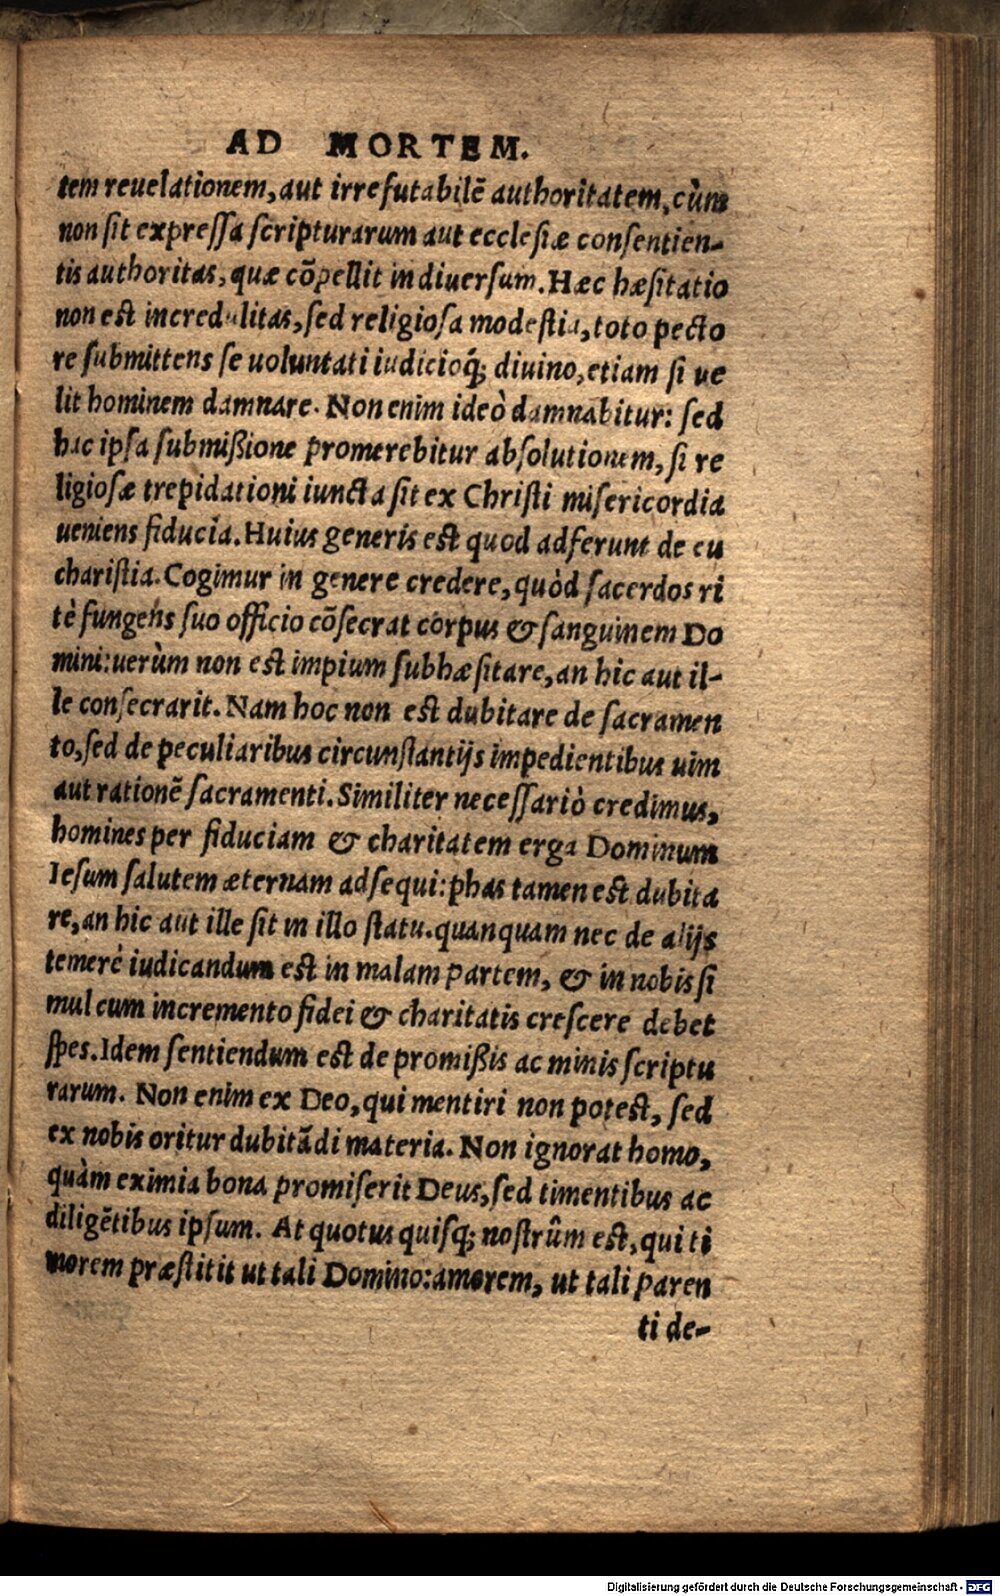 AD MORTEM.
tem reuelationem, aut irrefutabilē authoritatem, cùm
non sit expressa scripturarum aut ecclesiæ consentien-
tis authoritas, quæ cōpellit in diuersum. Hæc hæsitatio
non est incredulitas, sed religiosa modestia, toto pecto
re submittens se uoluntati iudicioq́; diuino, etiam si ue
lit hominem damnare. Non enim ideò damnabitur: sed
hac ipsa submißione promerebitur absolutionem, si re
ligiosæ trepidationi iuncta sit ex Christi misericordia
ueniens fiducia. Huius generis est quod adferunt de eu
charistia. Cogimur in genere credere, quòd sacerdos ri
tè fungens suo officio cōsecrat corpus & sanguinem Do
mini: uerùm non est impium subhæsitare, an hic aut il-
le consecrarit. Nam hoc non est dubitare de sacramen
to, sed de peculiaribus circunstantijs impedientibus uim
aut rationē sacramenti. Similiter necessariò credimus,
homines per fiduciam & charitatem erga Dominum
Iesum salutem æternam adsequi: phas tamen est dubita
re, an hic aut ille sit in illo statu. quanquam nec de alijs
temerè iudicandum est in malam partem, & in nobis si
mul cum incremento fidei & charitatis crescere debet
spes. Idem sentiendum est de promißis ac minis scriptu
rarum. Non enim ex Deo, qui mentiri non potest, sed
ex nobis oritur dubitādi materia. Non ignorat homo,
quàm eximia bona promiserit Deus, sed timentibus ac
diligētibus ipsum. At quotus quisq; nostrûm est, qui ti
morem præstitit ut tali Domino: amorem, ut tali paren
ti de-
Digitalisierung gefördert durch die Deutsche Forschungsgemeinschaft - DFG